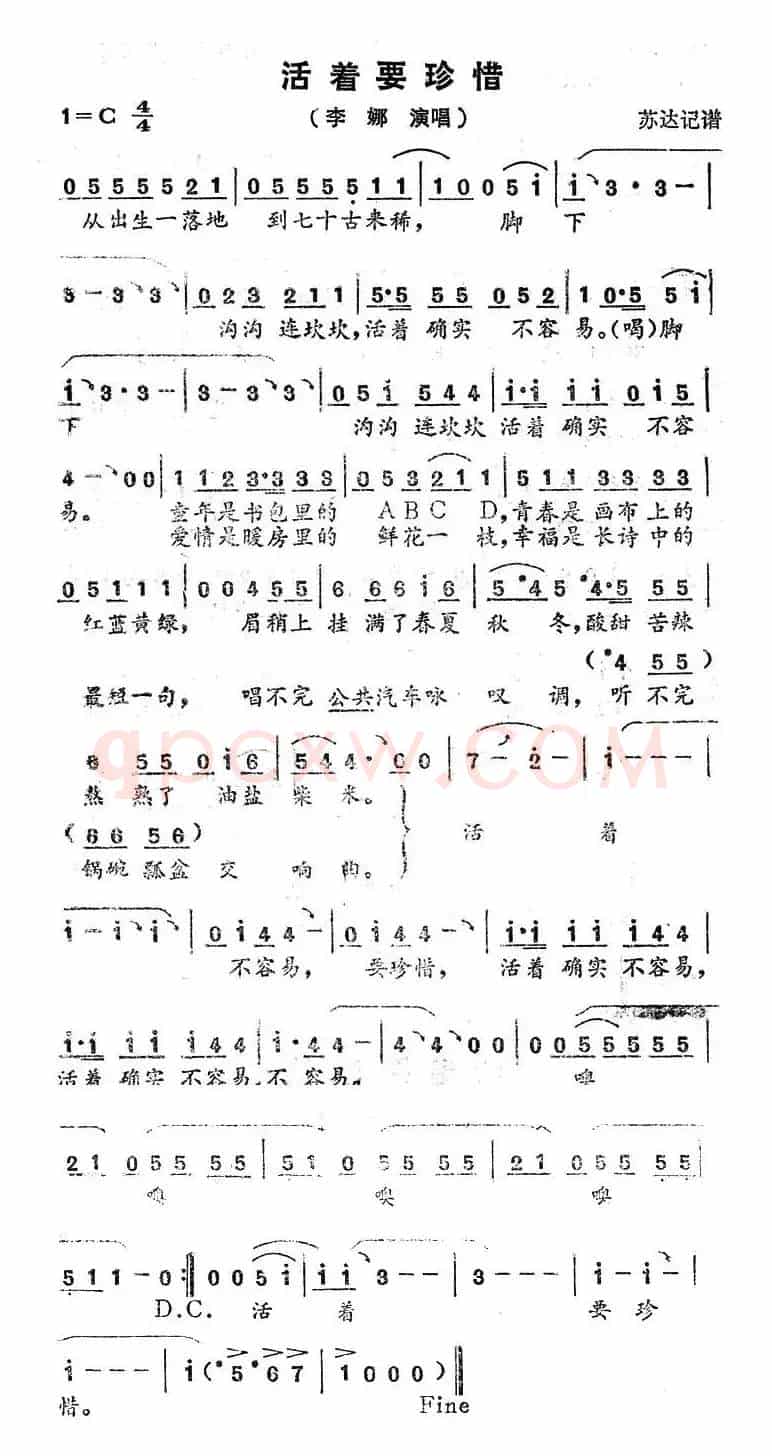 活着要珍惜
1=C 4/4 （李娜 演唱） 苏达记谱
0 5 5 5 5 5 2 1 | 0 5 5 5 5 5 1 1 | 1 0 0 5 i | i 3 · 3 — |
从出生一落地 到七十古来稀， 脚 下
3 — 3 3 | 0 2 3 2 1 1 | 5·5 5 5 0 5 2 | 1 0·5 5 i |
沟沟 连坎坎，活着 确实 不容 易。（喝）脚
i 3 · 3 — | 3 — 3 3 | 0 5 i 5 4 4 | i·i i i 0 i 5 |
下 沟沟 连坎坎 活着 确实 不容
4 — 0 0 | 1 1 2 3·3 3 3 | 0 5 3 2 1 1 | 5 1 1 3 3 3 3 |
易。 童年是书包里的 ABC D，青春是画布上的
爱情是暖房里的 鲜花一 枝，幸福是长诗中的
0 5 1 1 1 | 0 0 4 5 5 | 6 6 6 i 6 | 5 #4 5 #4·5 5 5 |
红蓝黄绿， 眉稍上 挂 满了春夏 秋 冬，酸甜 苦辣
（#4 5 5）
最短一句， 唱不完 公共汽车咏 叹 调，听不完
qpcxw.COM
6 5 5 0 i 6 | 5 4 4 · 0 0 | 7 — 2 — | i — — — |
熬 熟了 油盐 柴 米。
（6 6 5 6） 活 着
锅碗 瓢盆 交 响 曲。
i — i i | 0 i 4 4 — | 0 i 4 4 — | i·i i i i 4 4 |
不容易， 要珍惜， 活着 确实 不容易，
i·i i i i 4 4 | i·4 4 — | 4 4 0 0 | 0 0 5 5 5 5 5 5 |
活着 确实 不容易，不 容易。 噢
2 1 0 5 5 5 5 5 | 5 1 0 5 5 5 5 5 | 2 1 0 5 5 5 5 5 |
噢 噢 噢
5 1 1 — 0 :‖ 0 0 5 i | i i 3 — — | 3 — — — | i — i — |
D.C. 活 着 要 珍
i — — — | i（#5 #6 7 | 1 0 0 0）‖
惜。 Fine